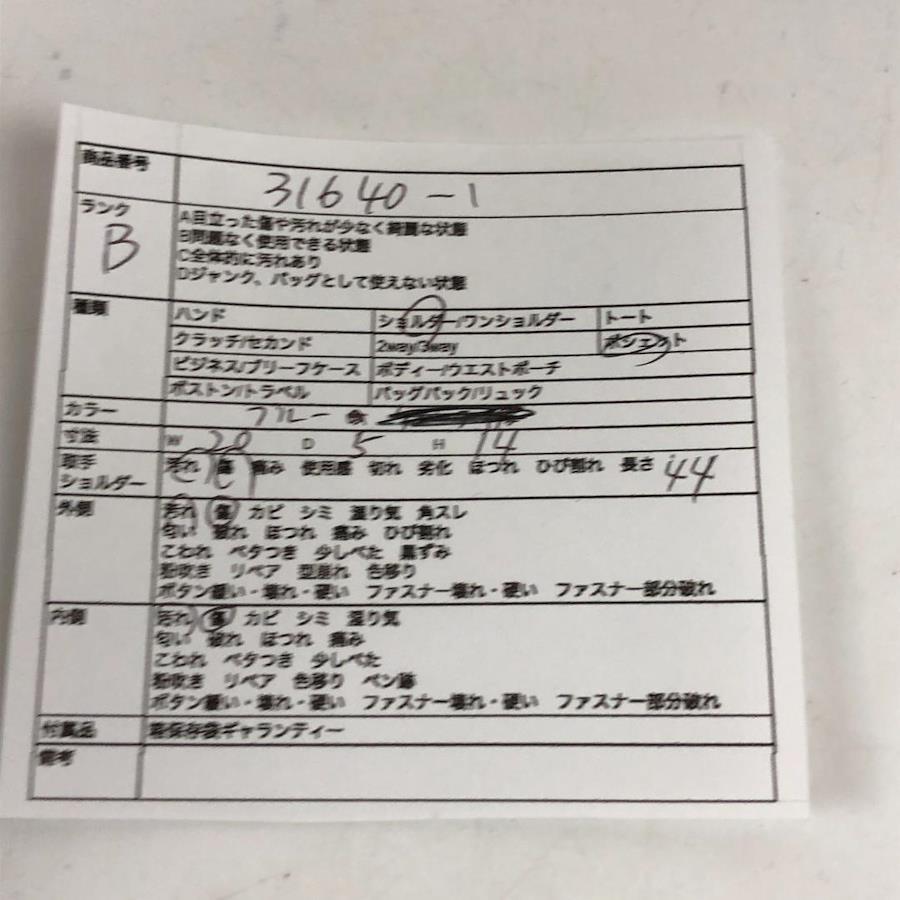 商品番号 31640-1
ランク B
A目立った傷や汚れが少なく綺麗な状態
B問題なく使用できる状態
C全体的に汚れあり
Dジャンク、バッグとして使えない状態
種類 ハンド ショルダー/ワンショルダー トート
クラッチ/セカンド 2way/3way ポシェット
ビジネス/ブリーフケース ボディー/ウエストポーチ
ボストン/トラベル バッグパック/リュック
カラー ブルー
寸法 W 20 D 5 H 14
取手 汚れ 傷 痛み 使用感 切れ 劣化 ほつれ ひび割れ 長さ 44
ショルダー
外側 汚れ 傷 カビ シミ 湿り気 角スレ
匂い 破れ ほつれ 痛み ひび割れ
こわれ ベタつき 少しべた 黒ずみ
粉吹き リペア 型崩れ 色移り
ボタン緩い・壊れ・硬い ファスナー壊れ・硬い ファスナー部分破れ
内側 汚れ 傷 カビ シミ 湿り気
匂い 破れ ほつれ 痛み
こわれ ベタつき 少しべた
粉吹き リペア 色移り ペン跡
ボタン緩い・壊れ・硬い ファスナー壊れ・硬い ファスナー部分破れ
付属品 箱保存袋ギャランティー
備考